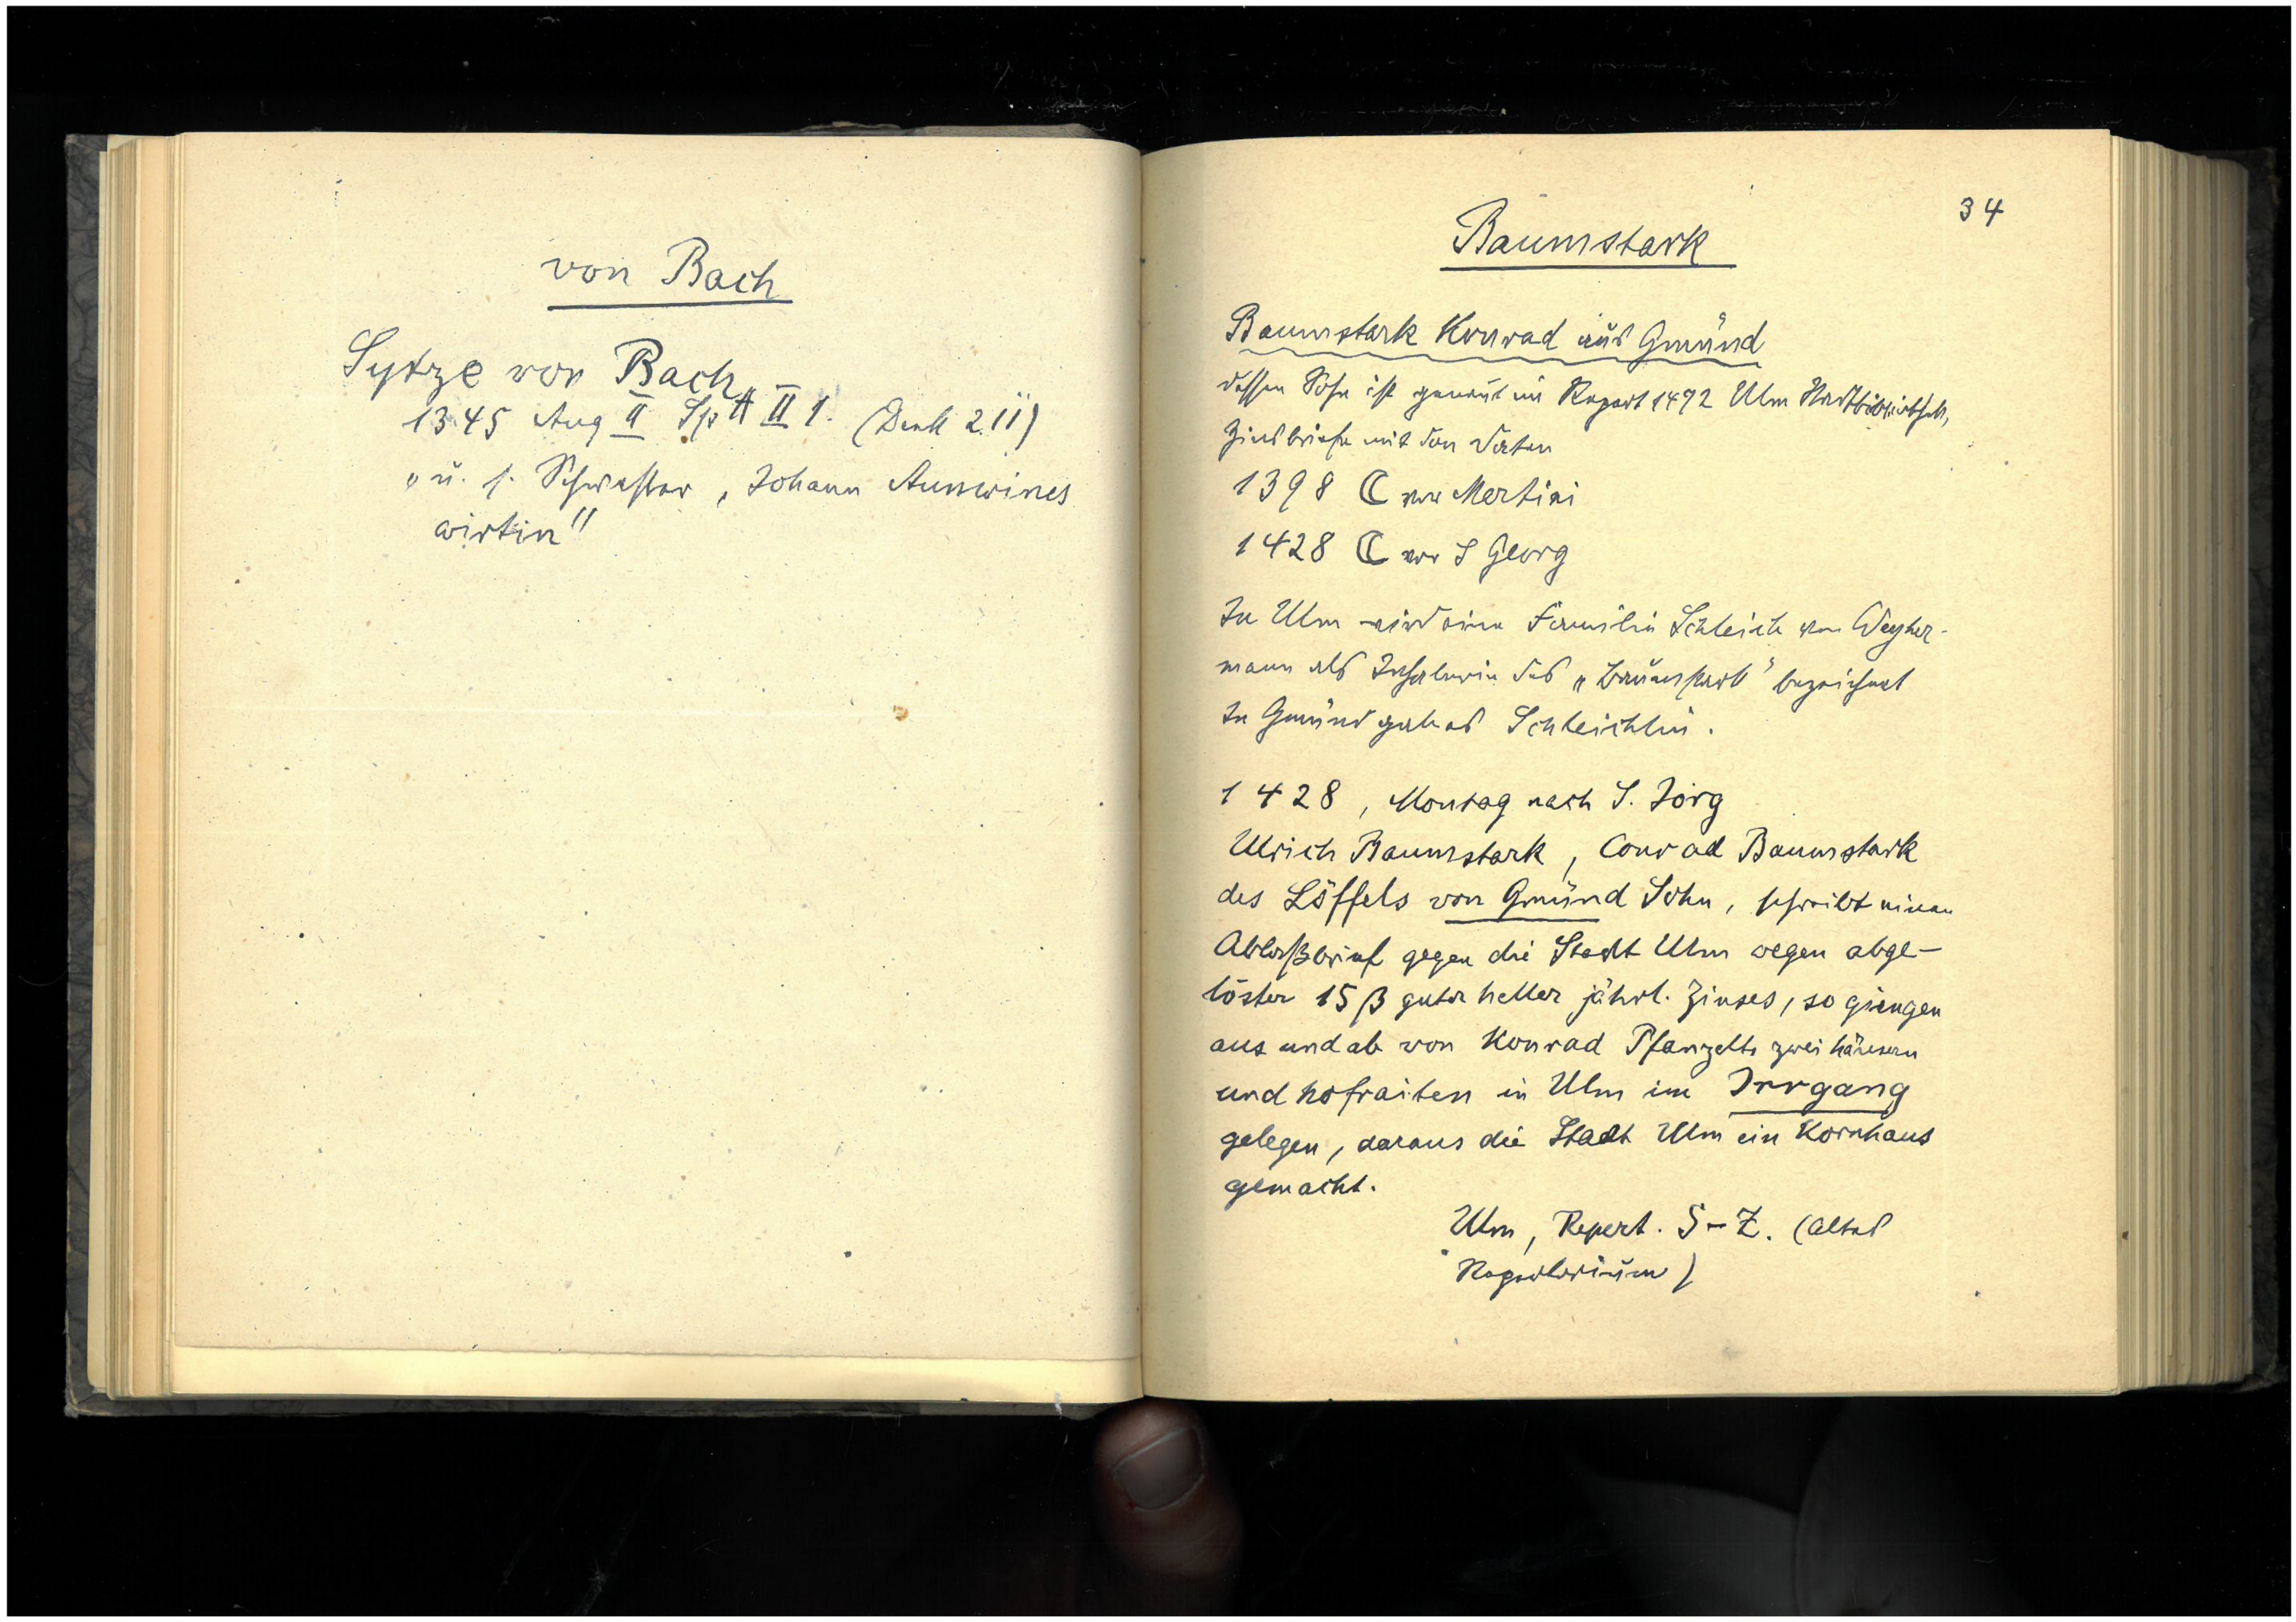 von Bach
Sytze von Bach
1345 Aug II Sp A II 1. (Denk 2.11)
„u. s. Schwester, Johann Aunwines
wirtin"
34
Baumstark
Baumstark Konrad aus Gmünd
dessen Sohn ist genannt im Repert 1492 Ulm Stadtbibliothek,
Zinsbriefe mit den Daten
1398 ☾ vor Martini
1428 ☾ vor S Georg
In Ulm wird eine Familie Schleich von Weyher-
mann als Inhaberin des „Baumstark" bezeichnet
In Gmünd gab es Schleichlin.
1428, Montag nach S. Jörg
Ulrich Baumstark, Conrad Baumstark
des Löffels von Gmünd Sohn, schreibt einen
Ablaßbrief gegen die Stadt Ulm wegen abge-
löster 15 β guter heller jährl. Zinses, so giengen
aus und ab von Konrad Pfanzelts zwei häusern
und hofraiten in Ulm im Irrgang
gelegen, daraus die Stadt Ulm ein Kornhaus
gemacht.
Ulm, Repert. S-Z. (altes
Repertorium)